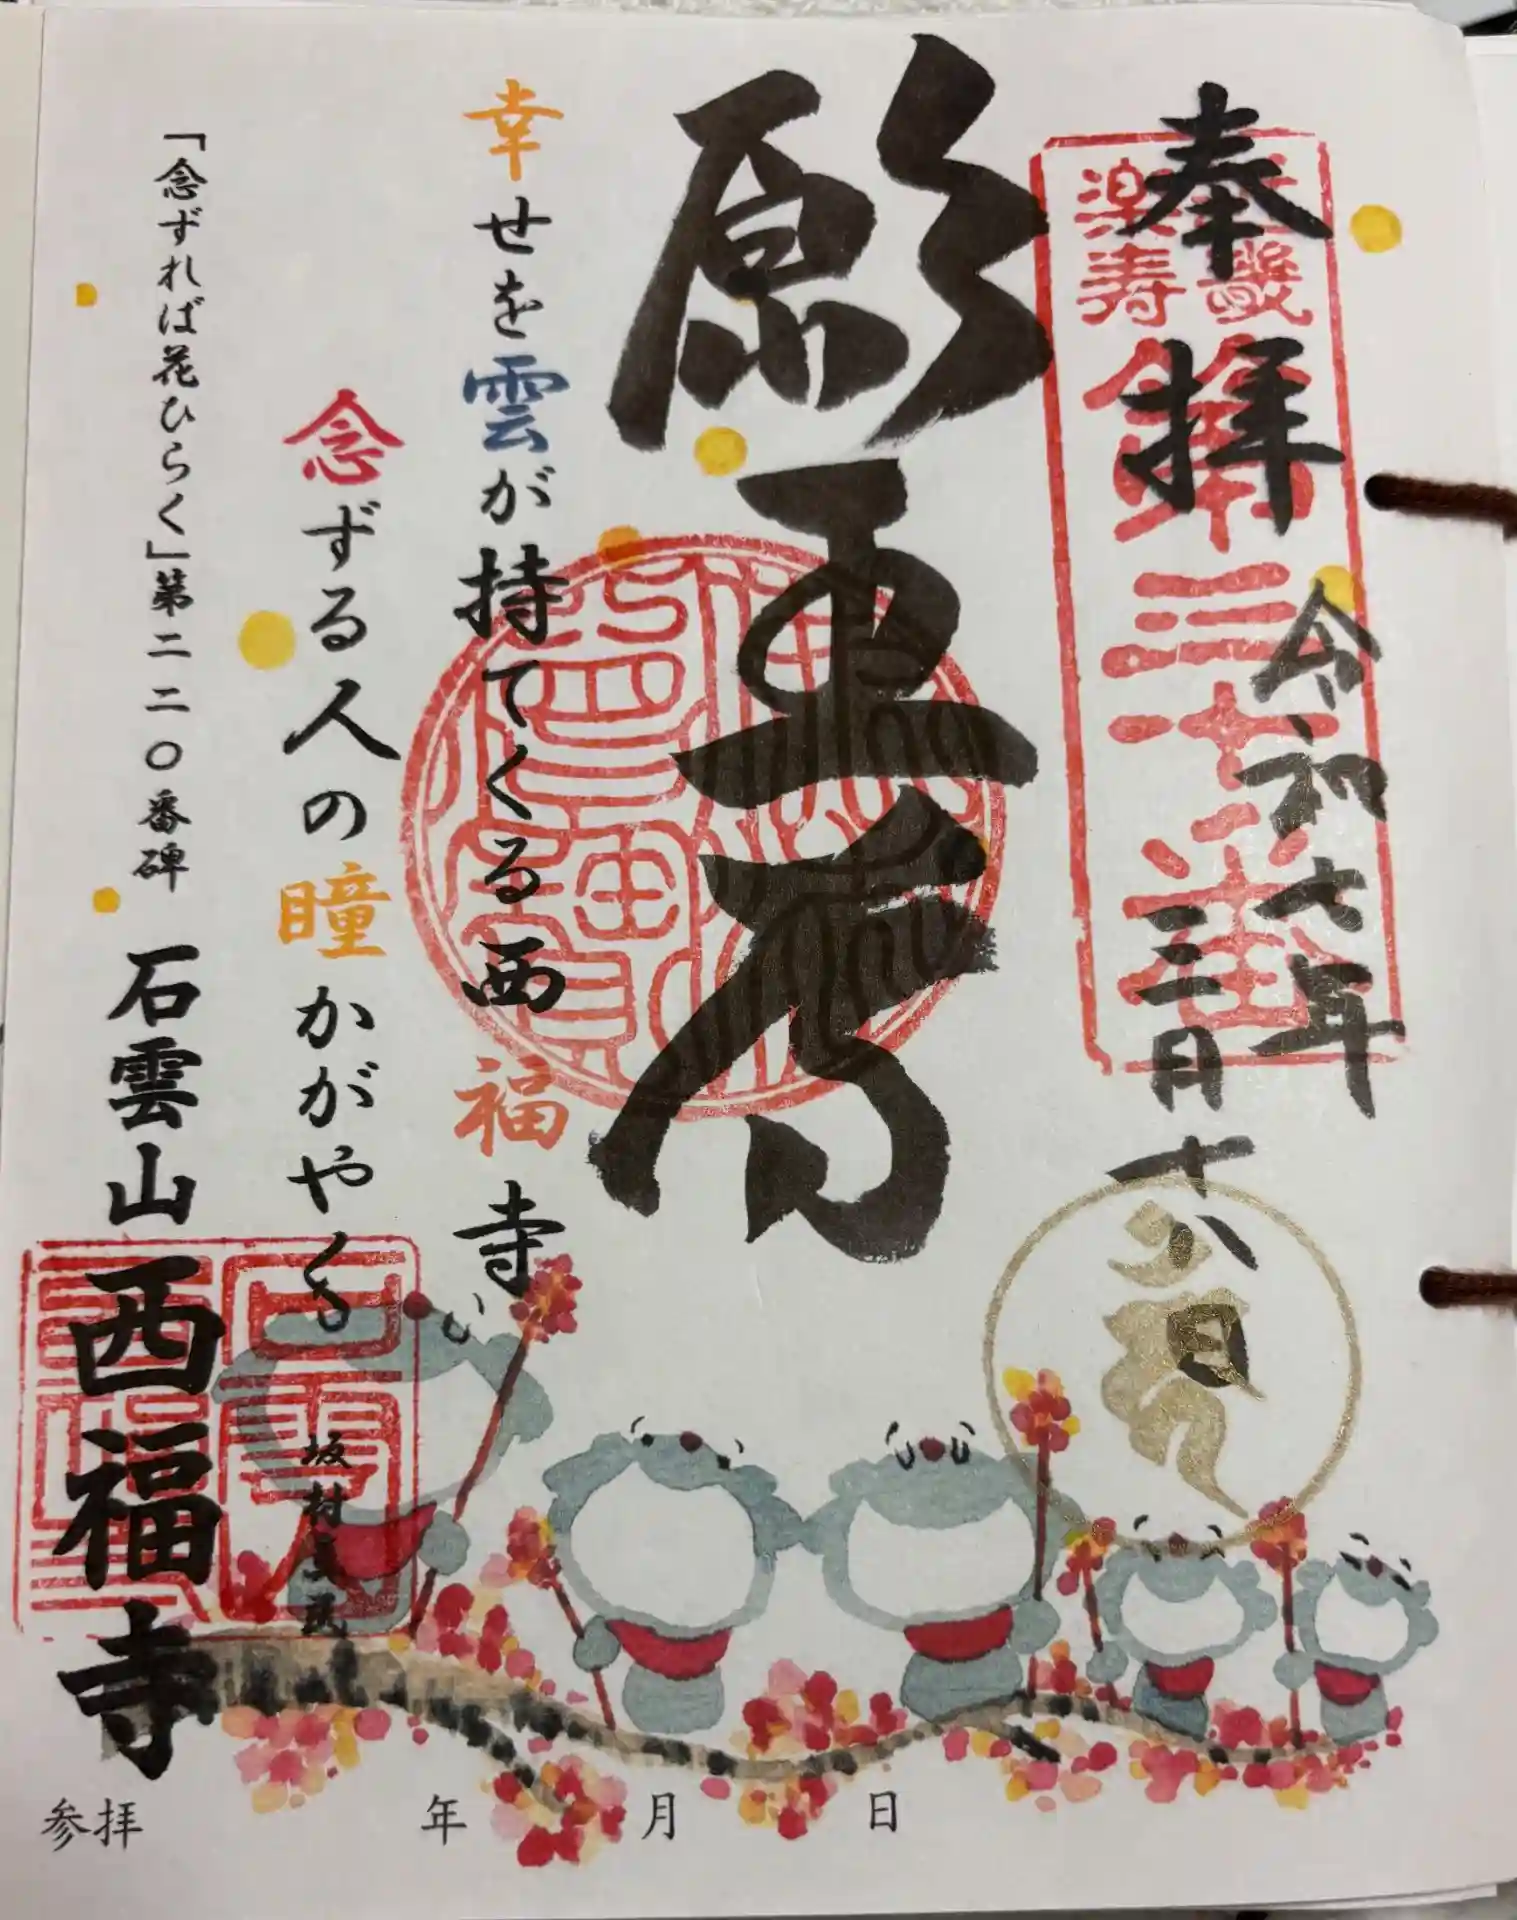 奉拝
令和七年
三月十八日
楽寿
第三十三番
願王尊
幸せを雲が持てくる西福寺
念ずる人の瞳かがやく
坂村真民
「念ずれば花ひらく」第二二〇番碑
石雲山
西福寺
参拝 年 月 日